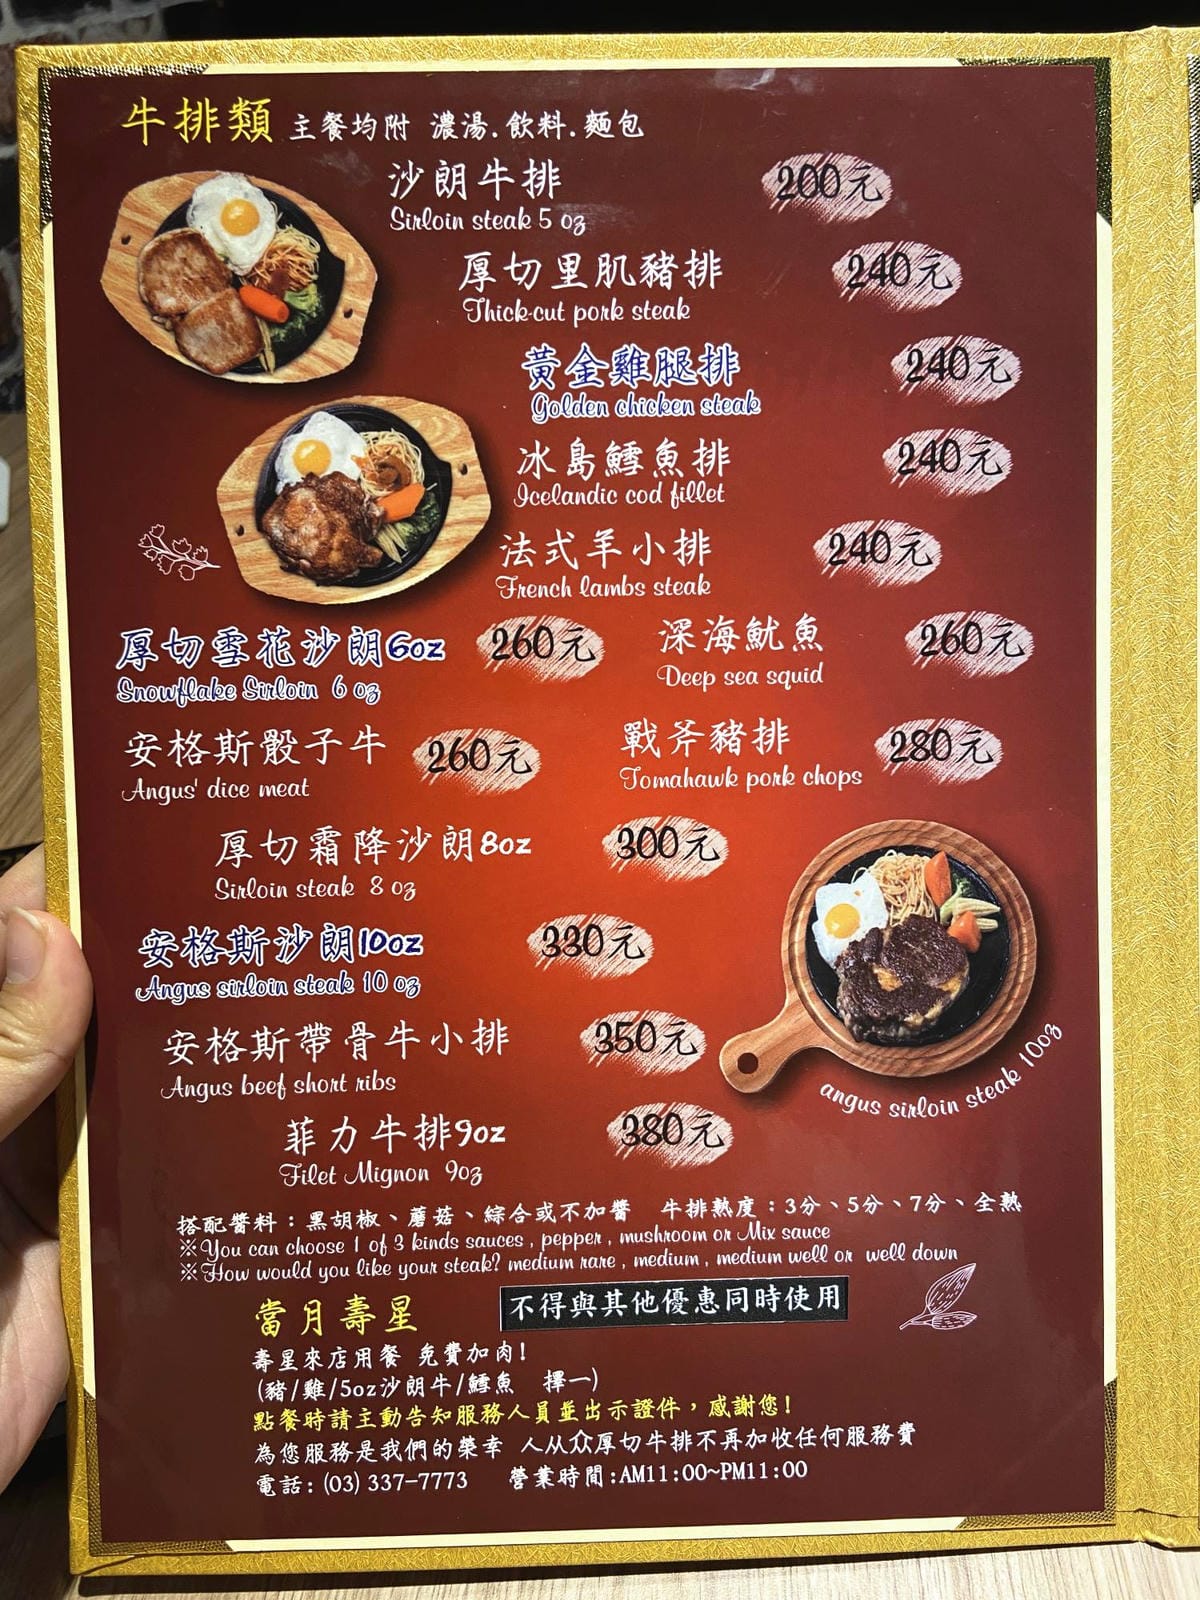 牛排類 主餐均附 濃湯.飲料.麵包
沙朗牛排 200元
Sirloin steak 5 oz
厚切里肌豬排 240元
Thick-cut pork steak
黃金雞腿排 240元
Golden chicken steak
冰島鱈魚排 240元
Icelandic cod fillet
法式羊小排 240元
French lambs steak
厚切雪花沙朗6oz 260元
Snowflake Sirloin 6 oz
深海魷魚 260元
Deep sea squid
安格斯骰子牛 260元
Angus' dice meat
戰斧豬排 280元
Tomahawk pork chops
厚切霜降沙朗8oz 300元
Sirloin steak 8 oz
安格斯沙朗10oz 330元
Angus sirloin steak 10 oz
安格斯帶骨牛小排 350元
Angus beef short ribs
angus sirloin steak 10oz
菲力牛排9oz 380元
Filet Mignon 9oz
搭配醬料：黑胡椒、蘑菇、綜合或不加醬 牛排熟度：3分、5分、7分、全熟
※You can choose 1 of 3 kinds sauces , pepper , mushroom or Mix sauce
※How would you like your steak? medium rare , medium , medium well or well down
當月壽星 不得與其他優惠同時使用
壽星來店用餐 免費加肉!
(豬/雞/5oz沙朗牛/鱈魚 擇一)
點餐時請主動告知服務人員並出示證件，感謝您!
為您服務是我們的榮幸 人从众厚切牛排不再加收任何服務費
電話: (03) 337-7773 營業時間:AM11:00~PM11:00